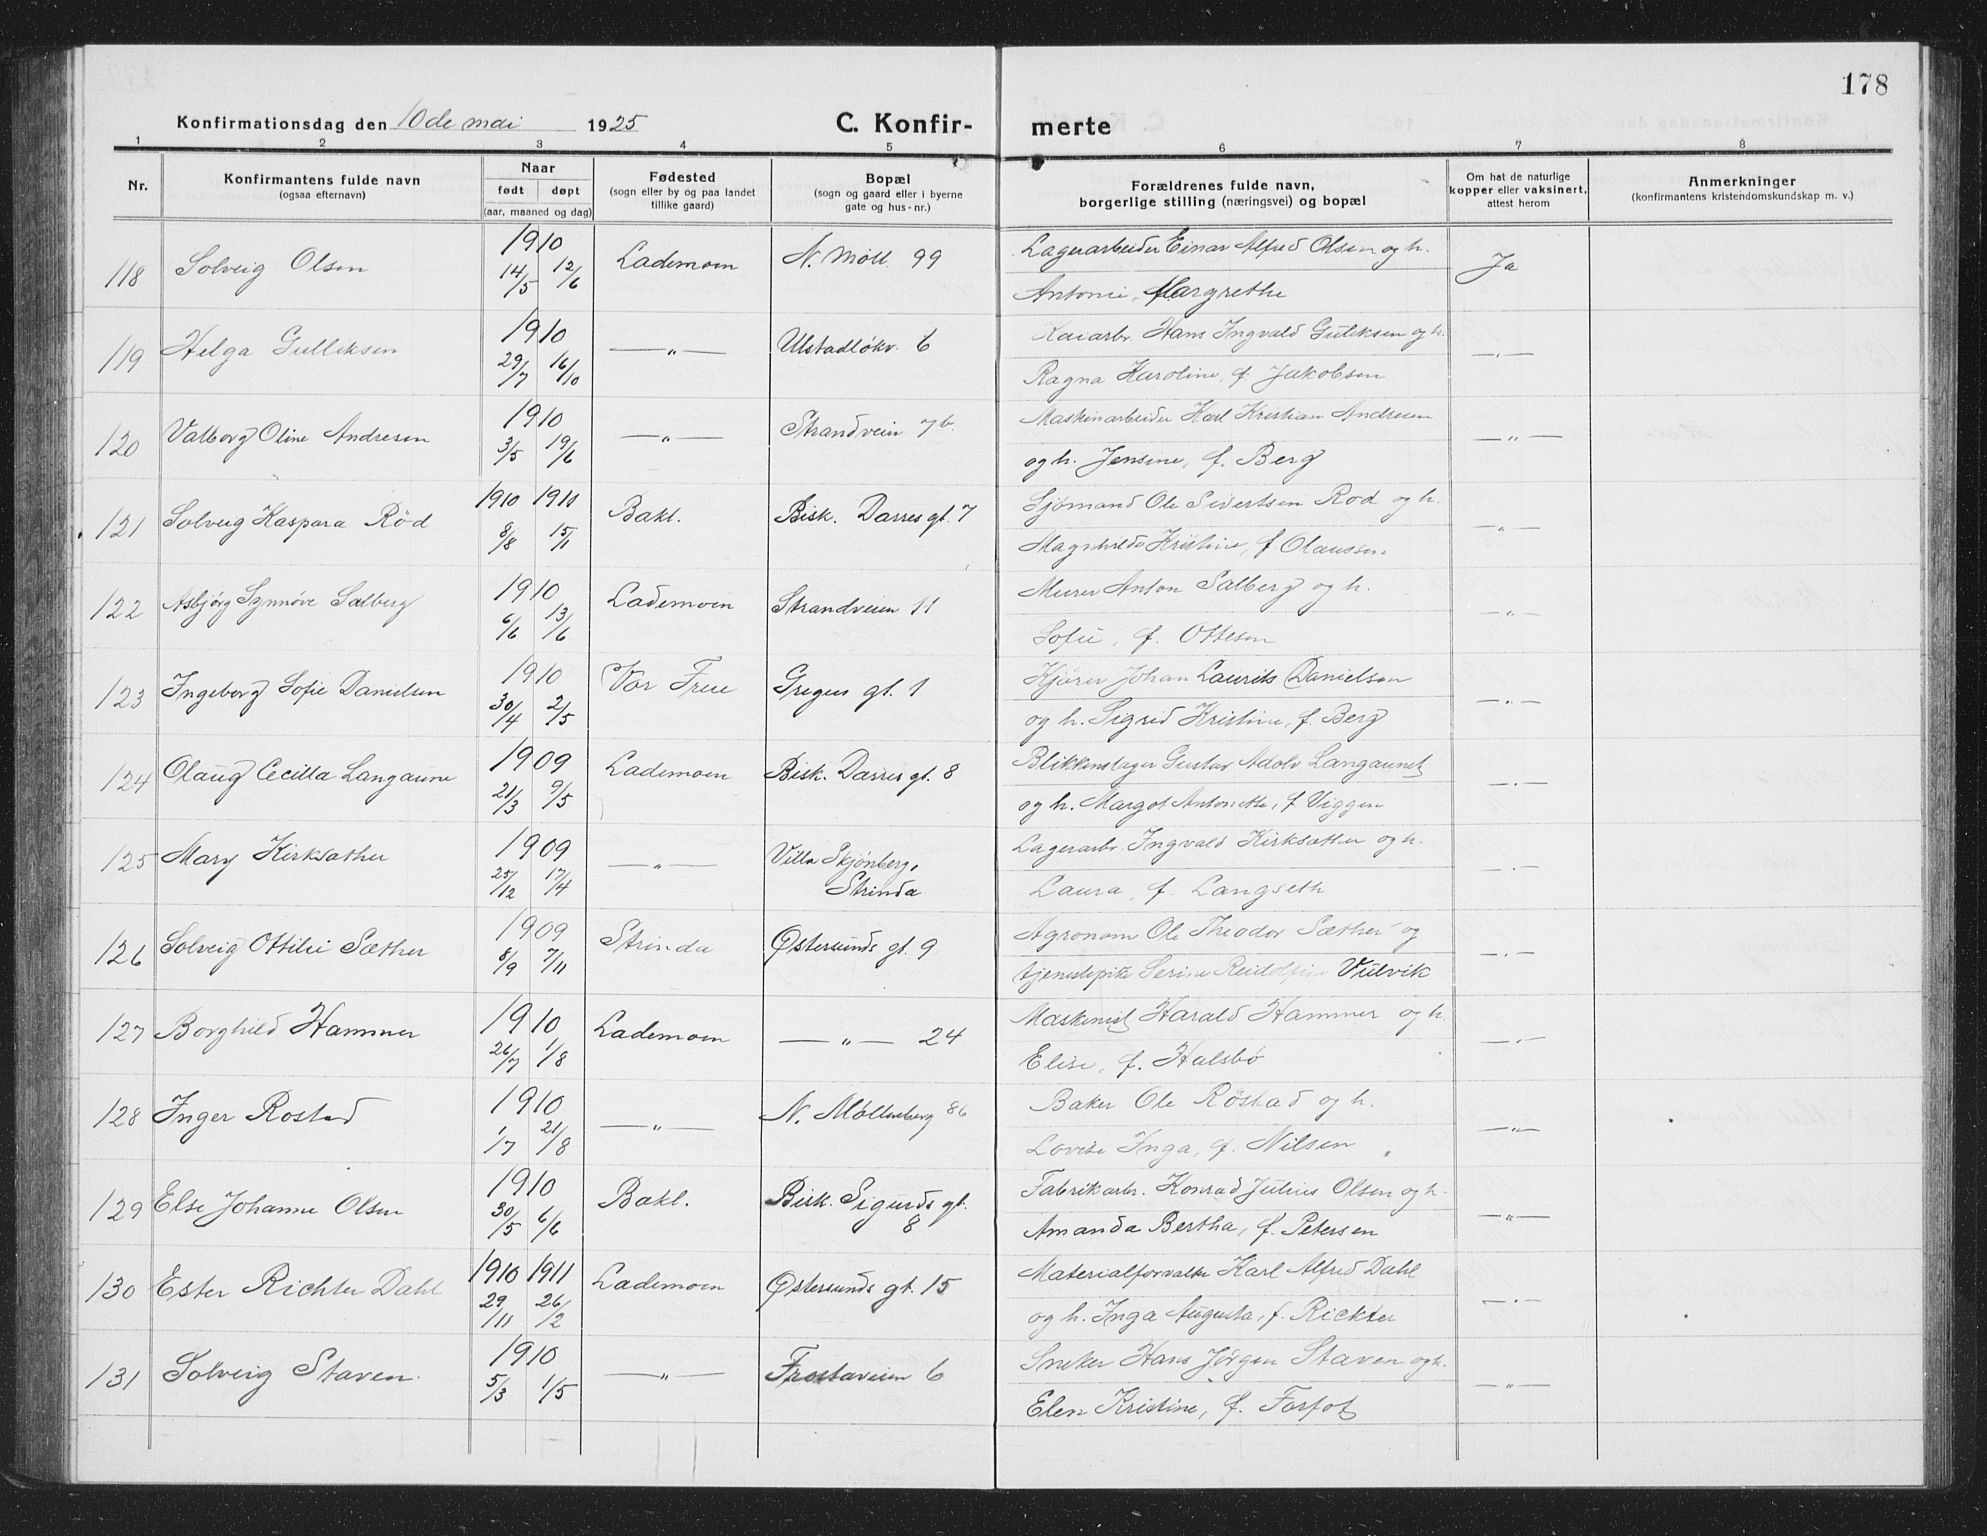 178
Konfirmationsdag den 10de mai 1925 C. Konfir- merte
1 2 3 4 5 6 7 8
Nr. Konfirmantens fulde navn (ogsaa efternavn) Naar født døpt (aar, maaned og dag) Fødested (sogn eller by og paa landet tillike gaard) Bopæl (sogn og gaard eller i byerne gate og hus-nr.) Forældrenes fulde navn, borgerlige stilling (næringsvei) og bopæl Om hat de naturlige kopper eller vaksinert, attest herom Anmerkninger (konfirmantens kristendomskundskap m. v.)
118 Solveig Olsen 1910 14/5 12/6 Lademoen N. Möll. 99 Lagerarbeider Einar Alfred Olsen og h. Ja
Antonie, Margrethe
119 Helga Gulliksen 1910 29/7 16/10 —〃— Ulstadløkv. 6 Kaiarb. Hans Ingvald Guliksen og h. —〃—
Ragna Karoline, f. Jakobsen
120 Valborg Oline Andresen 1910 3/5 19/6 —〃— Strandveien 7b. Maskinarbeider Karl Kristian Andresen —〃—
og h. Jensine, f. Berg
121 Solveig Kaspara Röd 1910 1910 8/8 15/1 Bakl. Bisk. Darres gt. 7 Sjömand Ole Sivertsen Rod og h. —〃—
Magnhilde Kristine, f. Olaussen
122 Asbjörg Synnöve Salberg 1910 6/6 13/6 Lademoen Strandveien 11 Murer Anton Salberg og h. —〃—
Sofie, f. Ottesen
123 Ingeborg Sofie Danielsen 1910 30/4 2/5 Vor Frue Gregus gt. 1 Kjører Johan Laurits Danielsen —〃—
og h. Sigrid Kristine, f. Berg
124 Olaug Cecilia Langaune 1909 21/3 9/5 Lademoen Bisk. Darres gt. 8 Blikkenslager Gustav Adolv Langaunet —〃—
og h. Margot Antonette, f. Viggen
125 Mary Kirksæther 1909 25/12 17/4 —〃— Villa Skjønberg, Strinda Lagerarbr. Ingvald Kirksætter og h. —〃—
Laura, f. Langseth
126 Solveig Ottilie Sæther 1909 8/9 7/11 Strinda Østersunds gt. 9 Agronom Ole Theodor Sæther og —〃—
tjenestepike Serine Reidolfine Vulvik
127 Borghild Hammer 1910 26/7 1/8 Lademoen —〃— 24 Maskinist Harald Hammer og h. —〃—
Elise, f. Halsbö
128 Inger Rostad 1910 1/7 21/8 —〃— N. Möllenberg 86 Baker Ole Röstad og h. —〃—
Lovise Inga, f. Nilsen
129 Else Johanne Olsen 1910 30/5 6/6 Bakl. Bisk. Sigurds gt. 8 Fabrikarbr. Konrad Julius Olsen og h. —〃—
Amanda Bertha, f. Petersen
130 Ester Richter Dahl 1910 1911 29/11 26/2 Lademoen Østersunds gt. 15 Materialforvalter Karl Alfred Dahl —〃—
og h. Inga Augusta, f. Rickter
131 Solveig Staven 1910 5/3 1/5 —〃— Frostaveien 6 Sneker Hans Jørgen Staven og h. —〃—
Elen Kristine, f. Forfot